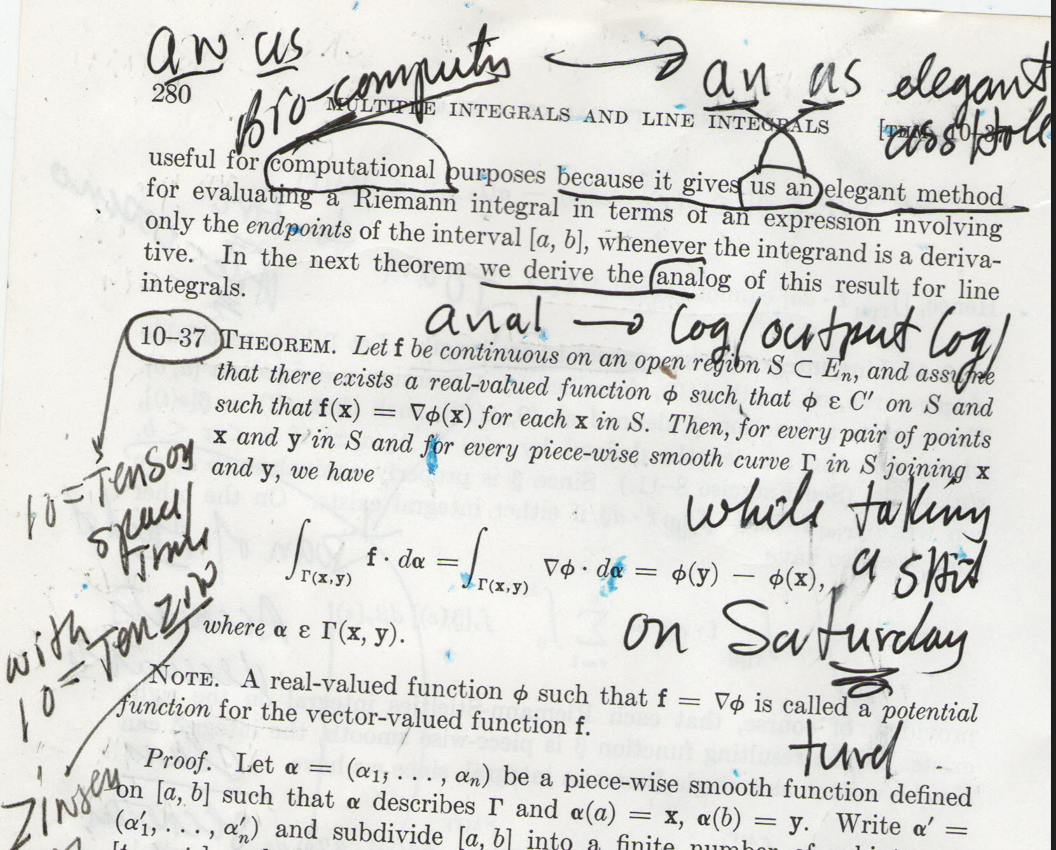 an us
bio-computer → an us elegant
asshole
280 MULTIPLE INTEGRALS AND LINE INTEGRALS
useful for computational purposes because it gives us an elegant method
for evaluating a Riemann integral in terms of an expression involving
only the endpoints of the interval [a, b], whenever the integrand is a deriva-
tive. In the next theorem we derive the analog of this result for line
integrals.
anal → log/output log/
10–37 THEOREM. Let f be continuous on an open region S ⊂ Eₙ, and assume
that there exists a real-valued function ϕ such that ϕ ε C′ on S and
such that f(x) = ∇ϕ(x) for each x in S. Then, for every pair of points
x and y in S and for every piece-wise smooth curve Γ in S joining x
and y, we have
10=Tenson
time
while taking
a shit
on Saturday
∫Γ(x,y) f · dα = ∫Γ(x,y) ∇ϕ · dα = ϕ(y) − ϕ(x),
where α ε Γ(x, y).
with
10=Tenzin
NOTE. A real-valued function ϕ such that f = ∇ϕ is called a potential
function for the vector-valued function f.
turd
Proof. Let α = (α₁, . . . , αₙ) be a piece-wise smooth function defined
on [a, b] such that α describes Γ and α(a) = x, α(b) = y. Write α′ =
(α₁′, . . . , αₙ′) and subdivide [a, b] into a finite number of